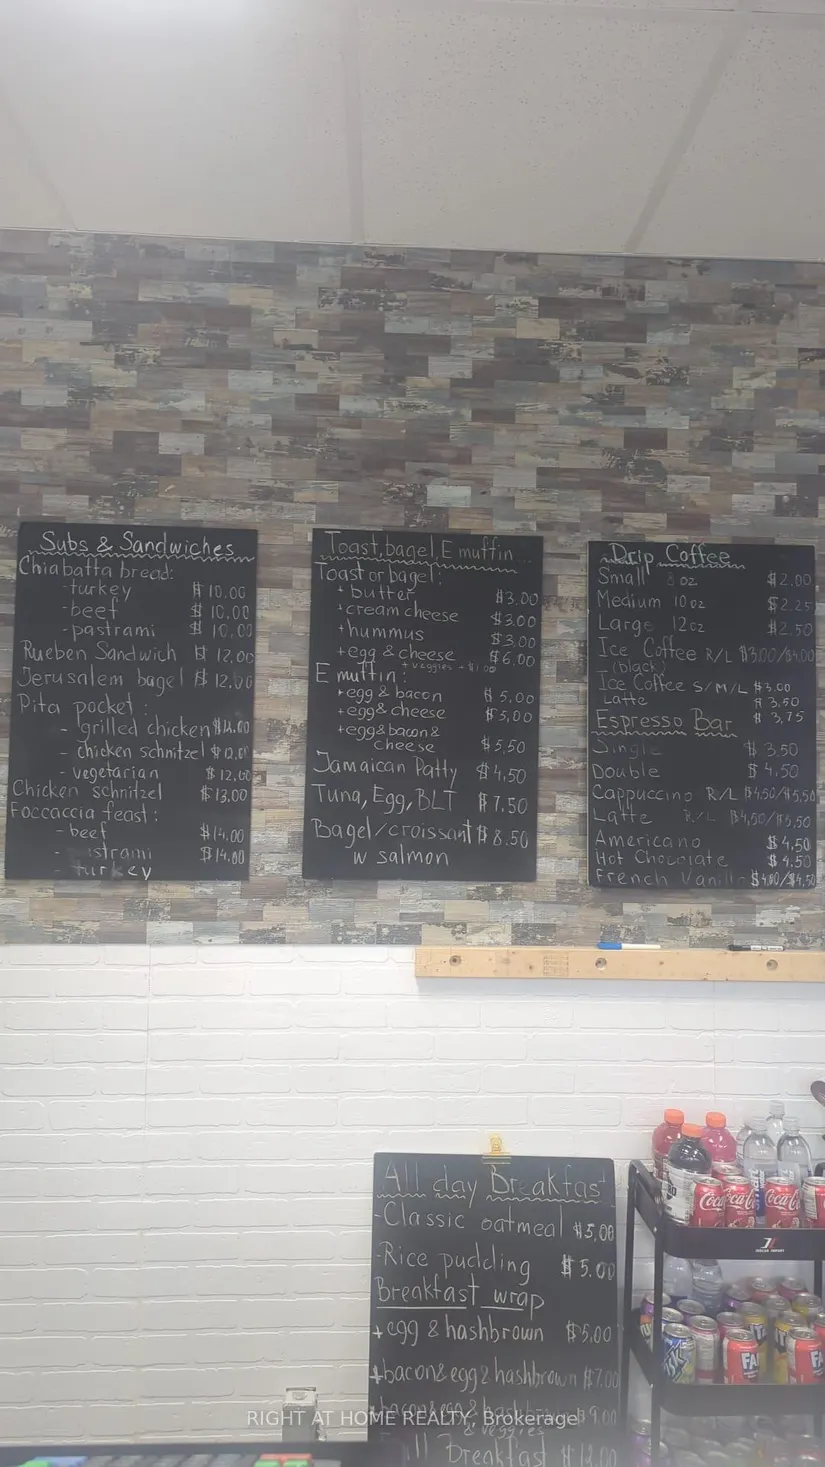 Subs & Sandwiches
Chiabatta bread:
-turkey $10.00
-beef $10.00
-pastrami $10.00
Rueben Sandwich $12.00
Jerusalem bagel $12.00
Pita pocket:
- grilled chicken $14.00
- chicken schnitzel $12.00
- vegetarian $12.00
Chicken schnitzel $13.00
Foccaccia feast:
-beef $14.00
$14.00
-turkey
Toast, bagel, E muffin...
Toast or bagel:
+ butter $3.00
+cream cheese $3.00
+hummus $3.00
+egg & cheese $6.00
+veggies +$1.00
E muffin:
+egg & bacon $5.00
+egg& cheese $5.00
+egg&bacon&
cheese $5.50
Jamaican Patty $4.50
Tuna, Egg, BLT $7.50
Bagel/croissant $8.50
w salmon
Drip Coffee
Small 8 oz $2.00
Medium 10 oz $2.25
Large 12oz $2.50
Ice Coffee R/L $3.00/$4.00
-(black)
Ice Coffee S/M/L $3.00
Latte $3.50
$3.75
Espresso Bar
Single $3.50
Double $4.50
Cappuccino R/L $4.50/$5.50
Latte R/L $4.50/$5.50
Americano $4.50
Hot Chocolate $4.50
French Vanilla $4.00/$4.50
All day Breakfast
-Classic oatmeal $5.00
-Rice pudding $5.00
Breakfast wrap
+egg & hashbrown $5.00
+bacon&egg& hashbrown $7.00
+bacon&egg& hashbrown $9.00
& veggies
Full Breakfast $13.00
Coca-Cola
RIGHT AT HOME REALTY, Brokerage